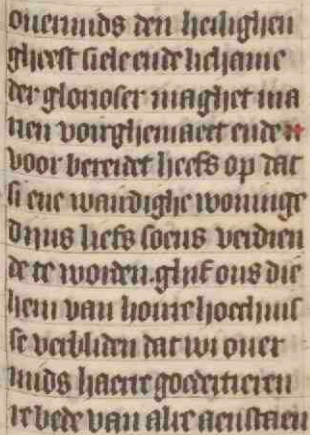 ouermids den heilighen
gheest siele ende lichame
der glorioser maghet ma
rien voirghemaect ende
voor bereidet heefs op dat
si ene waerdighe woninge
dijns liefs soens verdien
de te worden. ghif ons die
hem van hoire hoechnis
se verbliden dat wi ouer
mids haere goedertieren
re bede van allen aenstaen